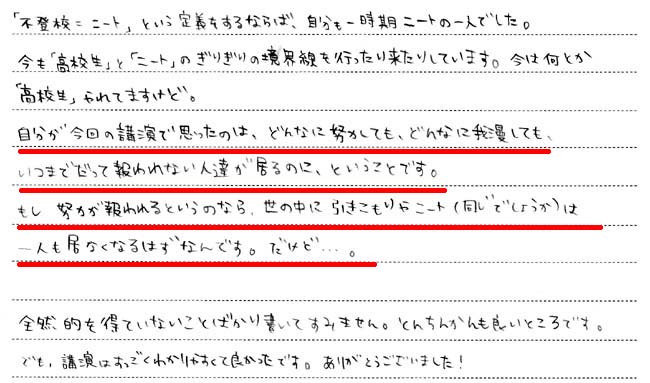 「不登校＝ニート」という定義をするならば、自分も一時期ニートの一人でした。
今も「高校生」と「ニート」のぎりぎりの境界線を行ったり来たりしています。今は何とか
「高校生」やれてますけど。
自分が今回の講演で思ったのは、どんなに努力しても、どんなに我慢しても、
いつまでだって報われない人達が居るのに、ということです。
もし 努力が報われるというのなら、世の中に引きこもりやニート(同じでしょうか)は
一人も居なくなるはずなんです。だけど…。
全然的を得ていないことばかり書いてすみません。とんちんかんも良いところです。
でも、講演はすっごくわかりやすくて良かったです。ありがとうございました！